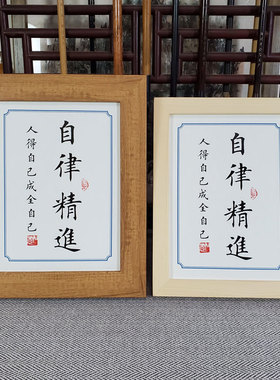 自律精進
人得自己成全自己
自律精進
人得自己成全自己